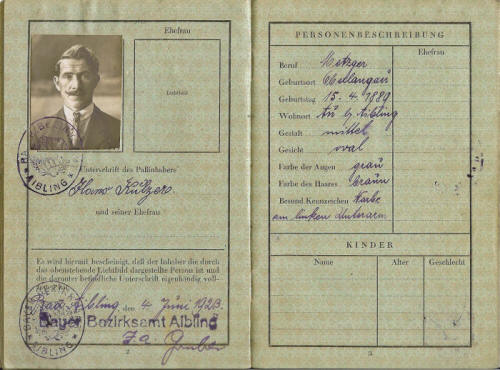 Ehefrau
Lichtbild
BAYER. BEZIRKSAMT
AIBLING
Unterschrift des Paßinhabers
Hans
und seiner Ehefrau
Es wird hiermit bescheinigt, daß der Inhaber die durch
das obenstehende Lichtbild dargestellte Person ist und
die darunter befindliche Unterschrift eigenhändig voll-
Bad Aibling, den 4. Juni 1923.
Bayer. Bezirksamt Aibling
BAYER. BEZIRKSAMT
AIBLING
2
PERSONENBESCHREIBUNG
Ehefrau
Beruf Metzger
Geburtsort
Geburtstag 15. 4. 1889
Wohnort Au b. Aibling
Gestalt mittel
Gesicht oval
Farbe der Augen grau
Farbe des Haares braun
Besond. Kennzeichen Narbe
am linken Unterarm
KINDER
Name Alter Geschlecht
3